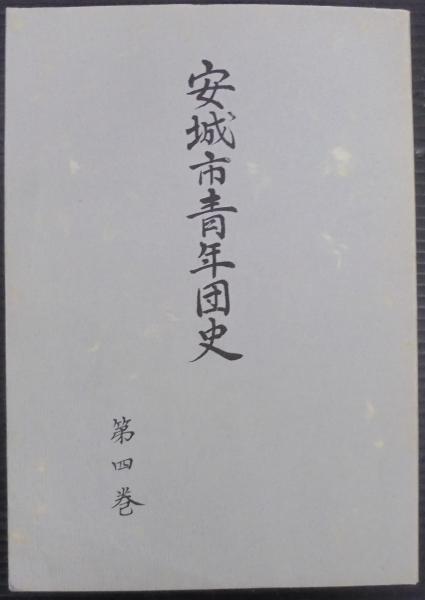 安城市青年団史
第四巻